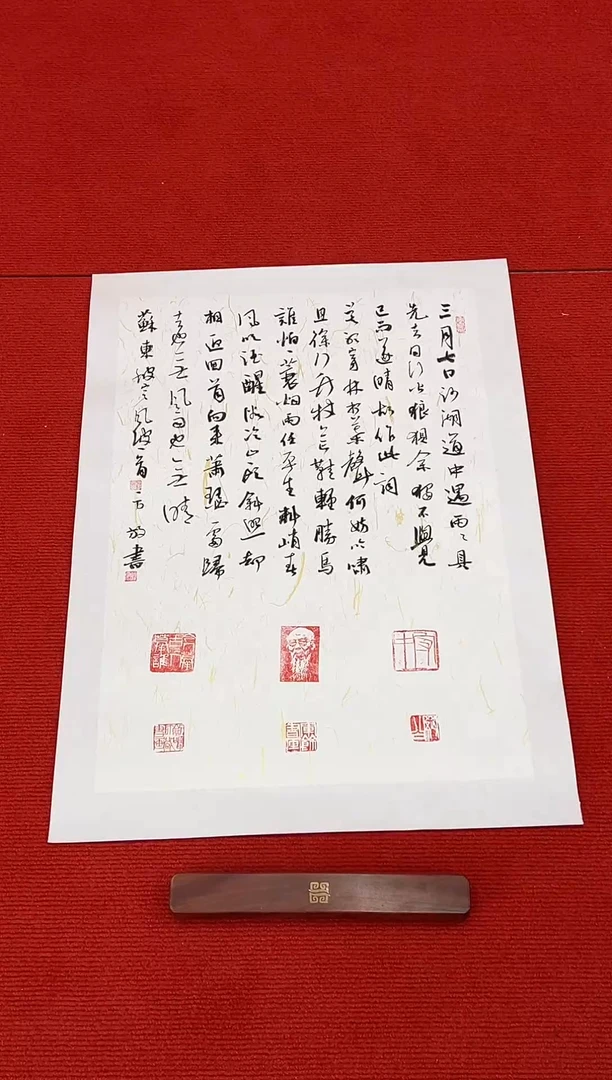 三月七日沙湖道中遇雨々具
先去同行皆狼狽余獨不覺
已而遂晴故作此詞
莫聽穿林打葉聲何妨吟嘯
且徐行竹杖芒鞋輕勝馬
誰怕一蓑烟雨任平生料峭春
風吹酒醒微冷山頭斜照却
相迎回首向來蕭瑟處歸
去也无風雨也无晴
蘇東坡定風波一首 書